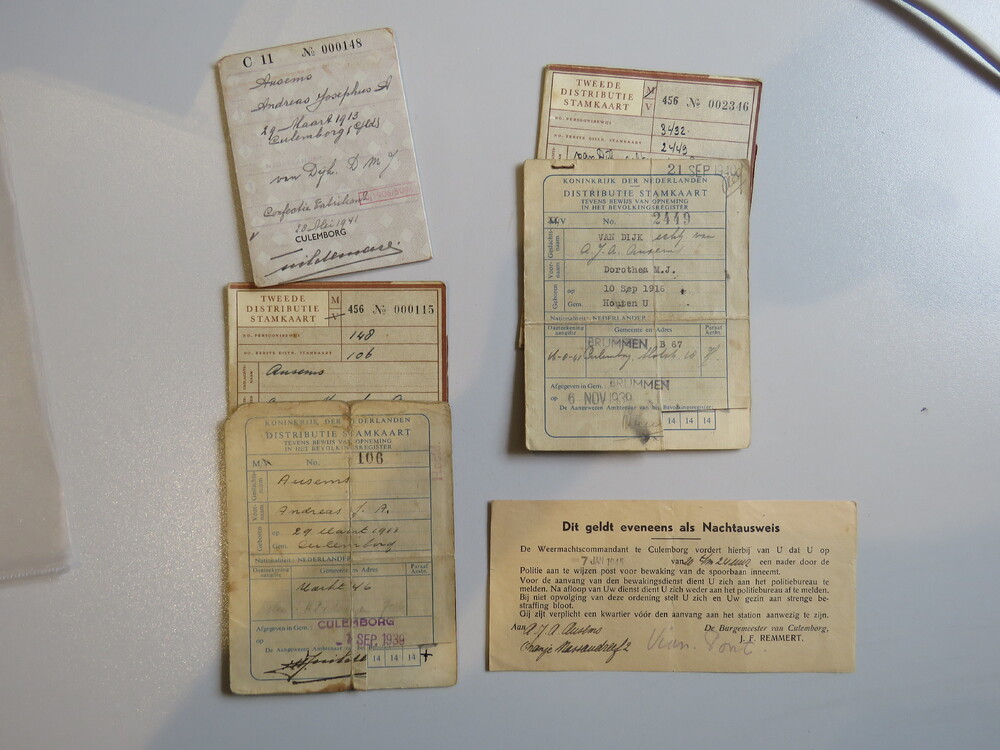 C 11 № 000148
Ausems
Andreas Josephus A
29 Maart 1913
Culemborg (Gld)
van Dijk. D M J
Confectie Fabrikant
28 Mei 1941
CULEMBORG
TWEEDE
DISTRIBUTIE
STAMKAART
M
456 № 000115
NO. PERSOONSBEWIJS 148
NO. EERSTE DISTR. STAMKAART 106
Ausems
KONINKRIJK DER NEDERLANDEN
DISTRIBUTIE STAMKAART
TEVENS BEWIJS VAN OPNEMING
IN HET BEVOLKINGSREGISTER
M/ No. 106
Geslachtsnaam Ausems
Voornaam Andreas J. A.
Geboren op 29 Maart
Gem. Culemborg
Nationaliteit: NEDERLANDER
Dagteekening aangifte Gemeente en Adres Paraaf Ambt.
Markt 46
Afgegeven in Gem.: CULEMBORG
op 1 SEP 1939
De Aangewezen Ambtenaar
14 14 14
TWEEDE
DISTRIBUTIE
STAMKAART
V
456 № 002346
NO. PERSOONSBEWIJS 3432
NO. EERSTE DISTR. STAMKAART 2449
van Dijk
21 SEP
KONINKRIJK DER NEDERLANDEN
DISTRIBUTIE STAMKAART
TEVENS BEWIJS VAN OPNEMING
IN HET BEVOLKINGSREGISTER
V No. 2449
Geslachtsnaam VAN DIJK echtg van
A.J.A. Ausems
Voornaam Dorothea M.J.
Geboren op 10 Sep 1916
Gem. Houten U
Nationaliteit: NEDERLANDER
Dagteekening aangifte Gemeente en Adres Paraaf Ambt.
BRUMMEN B 67
Culemborg,
Afgegeven in Gem.: BRUMMEN
op 6 NOV 1939
De Aangewezen Ambtenaar van het Bevolkingsregister,
14 14 14
Dit geldt eveneens als Nachtausweis
De Weermachtscommandant te Culemborg vordert hierbij van U dat U op
7 JAN 1945 van een nader door de
Politie aan te wijzen post voor bewaking van de spoorbaan inneemt.
Voor de aanvang van den bewakingsdienst dient U zich aan het politiebureau te
melden. Na afloop van Uw dienst dient U zich weder aan het politiebureau af te melden.
Bij niet opvolging van deze ordening stelt U zich en Uw gezin aan strenge be-
straffing bloot.
Gij zijt verplicht een kwartier vóór den aanvang aan het station aanwezig te zijn.
Aan A J A Ausems De Burgemeester van Culemborg,
Oranje Nassaudreef 2 J. F. REMMERT.